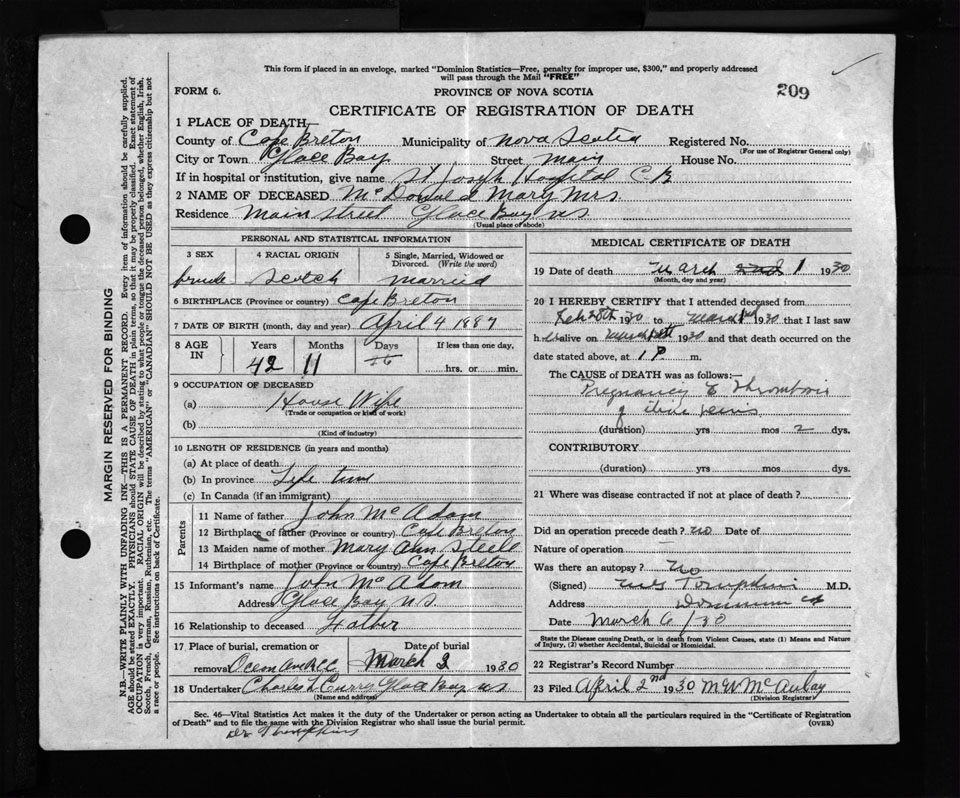 This form if placed in an envelope, marked "Dominion Statistics—Free, penalty for improper use, $300," and properly addressed
will pass through the Mail "FREE"
209
FORM 6.
PROVINCE OF NOVA SCOTIA
CERTIFICATE OF REGISTRATION OF DEATH
1 PLACE OF DEATH—
County of Cape Breton Municipality of Nova Scotia Registered No.
(For use of Registrar General only)
City or Town Glace Bay Street Main House No.
If in hospital or institution, give name St Joseph Hospital C B
2 NAME OF DECEASED McDonald Mary Mrs.
Residence Main street Glace Bay NS
(Usual place of abode)
PERSONAL AND STATISTICAL INFORMATION
3 SEX
4 RACIAL ORIGIN
5 Single, Married, Widowed or Divorced. (Write the word)
Scotch married
6 BIRTHPLACE (Province or country) Cape Breton
7 DATE OF BIRTH (month, day and year) April 4 1887
8 AGE IN
Years Months Days If less than one day,
42 11
hrs. or min.
9 OCCUPATION OF DECEASED
(a) House Wife
(Trade or occupation or kind of work)
(b)
(Kind of industry)
10 LENGTH OF RESIDENCE (in years and months)
(a) At place of death
(b) In province Life time
(c) In Canada (if an immigrant)
Parents
11 Name of father John McAdam
12 Birthplace of father (Province or country) Cape Breton
13 Maiden name of mother Mary Ann Steele
14 Birthplace of mother (Province or country) Cape Breton
15 Informant's name John McAdam
Address Glace Bay NS.
16 Relationship to deceased Father
17 Place of burial, cremation or removal
Date of burial
March 2 1930
18 Undertaker Charles Curry Glace Bay NS
(Name and address)
MEDICAL CERTIFICATE OF DEATH
19 Date of death March 1 1930
(Month, day and year)
20 I HEREBY CERTIFY that I attended deceased from
Feb 28th 1930 to March 1st 1930 that I last saw
alive on 1930 and that death occurred on the
date stated above, at 1 P. m.
The CAUSE of DEATH was as follows:—
Pregnancy Thrombosis
(duration) yrs mos 2 dys.
CONTRIBUTORY
(duration) yrs mos dys.
21 Where was disease contracted if not at place of death?
Did an operation precede death? no Date of
Nature of operation
Was there an autopsy? No
(Signed) Tompkins M.D.
Address Dominion
Date March 6/30
State the Disease causing Death, or in death from Violent Causes, state (1) Means and Nature of Injury, (2) whether Accidental, Suicidal or Homicidal.
22 Registrar's Record Number
23 Filed April 2nd 1930 McAulay
(Division Registrar)
Sec. 46—Vital Statistics Act makes it the duty of the Undertaker or person acting as Undertaker to obtain all the particulars required in the "Certificate of Registration
of Death" and to file the same with the Division Registrar who shall issue the burial permit.
(OVER)
Dr Thompkins
MARGIN RESERVED FOR BINDING
N.B.—WRITE PLAINLY WITH UNFADING INK—THIS IS A PERMANENT RECORD. Every item of information should be carefully supplied.
AGE should be stated EXACTLY. PHYSICIANS should STATE CAUSE OF DEATH in plain terms, so that it may be properly classified. Exact statement of
OCCUPATION is very important. RACIAL ORIGIN will be described by stating to what people or tongue the deceased person belonged, whether English, Irish,
Scotch, French, German, Russian, Ruthenian, etc. The terms "AMERICAN" or "CANADIAN" SHOULD NOT BE USED as they express citizenship but not
a race or people. See instructions on back of Certificate.